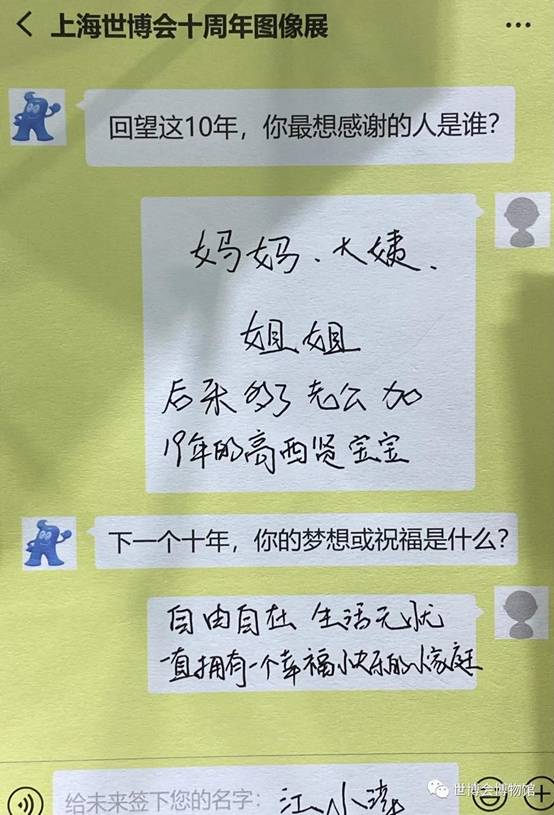 上海世博会十周年图像展
回望这10年，你最想感谢的人是谁？
妈妈、大姨、
姐姐
后来多了老公加
19年的高西贤宝宝
下一个十年，你的梦想或祝福是什么？
自由自在 生活无忧
一直拥有一个幸福快乐的小家庭
给未来签下您的名字：江小
世博会博物馆